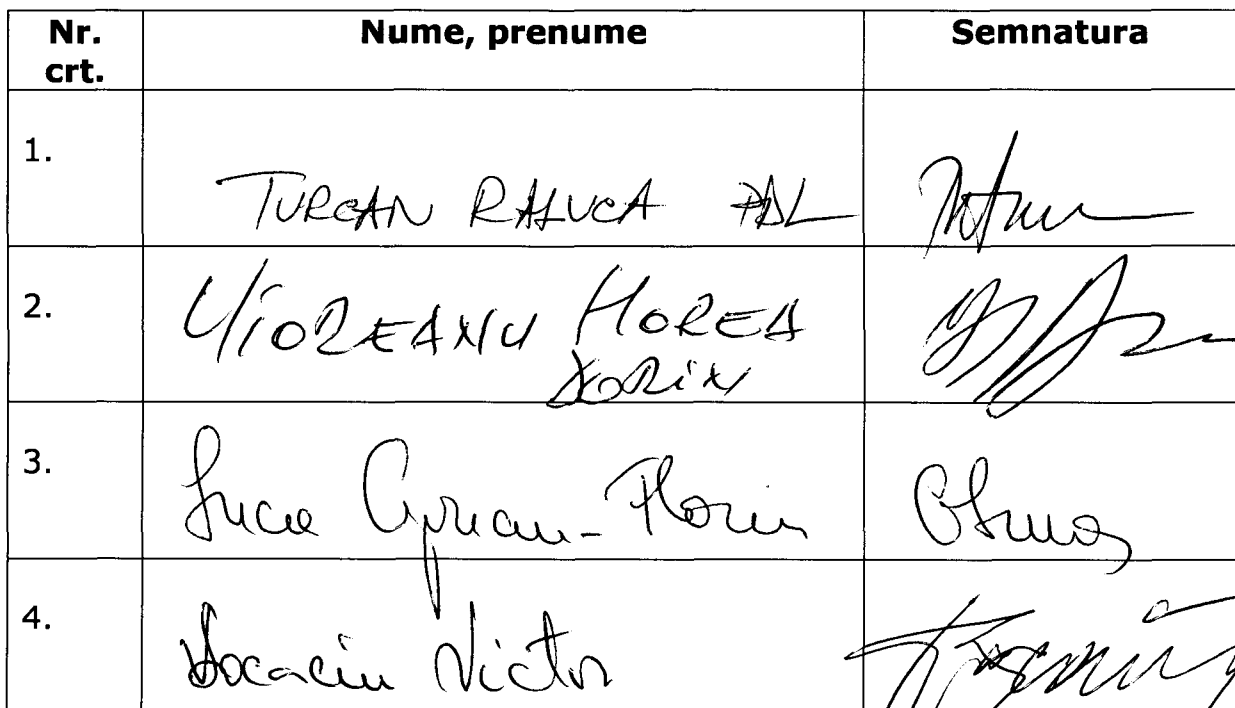 Nr. crt. Nume, prenume Semnatura
1. TURCAN RALUCA PDL
2. UIOREANU HOREA
DORIN
3. Lucia Ciprian-Florin
4. Socaciu Victor